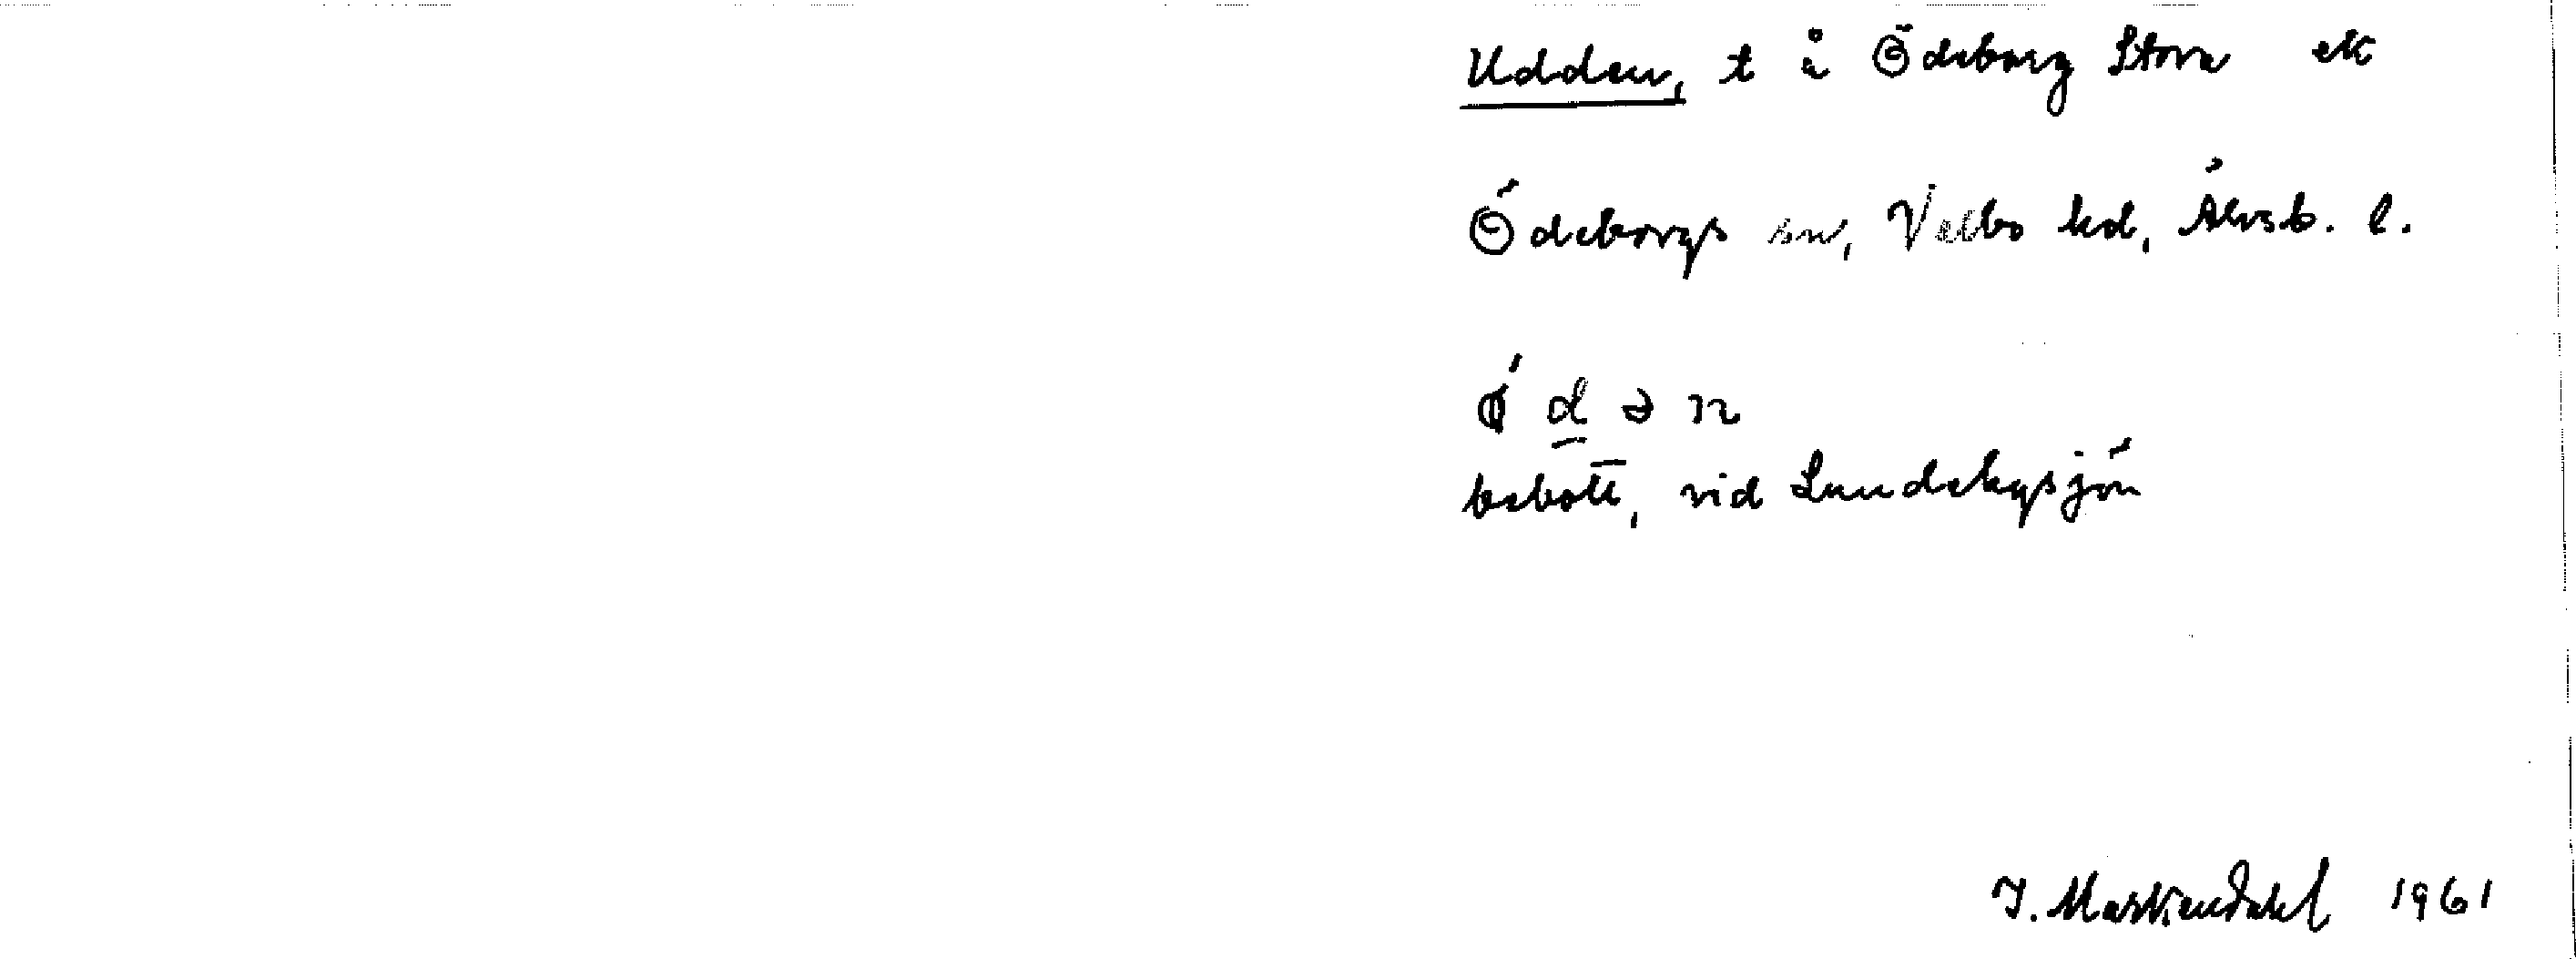 Udden, t å Ödeborg Stora ek
Ödeborgs sn, Valbo hd, Älvsb. l.
ǿ d̲ ə n
bebott, vid Lundebysjön
I. Martiendahl 1961